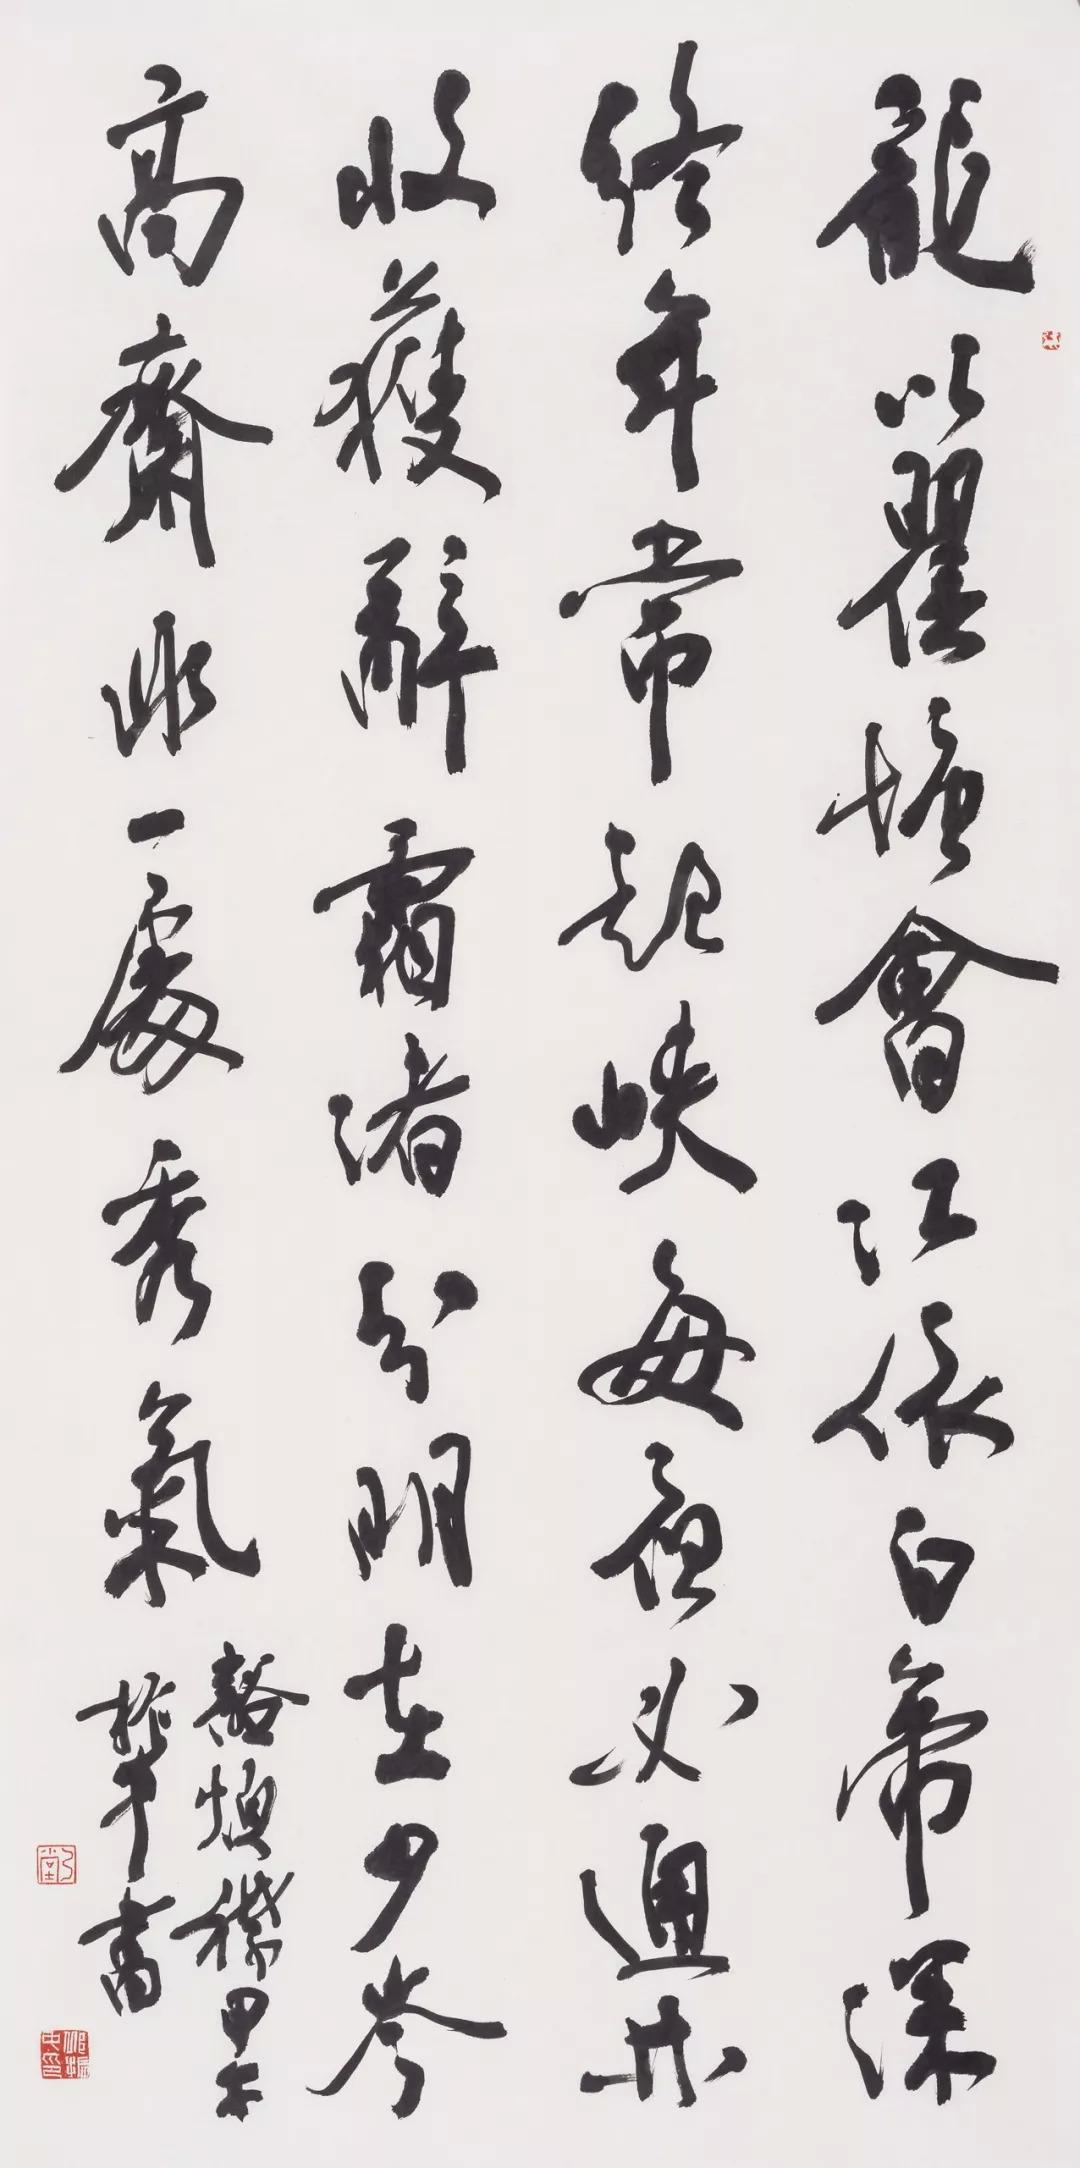 龍以瞿塘會江依白帝深
終年常起峽每夜必通林
收獲辭霜渚分明在夕岑
高齋非一處秀氣
豁煩襟甲午
書